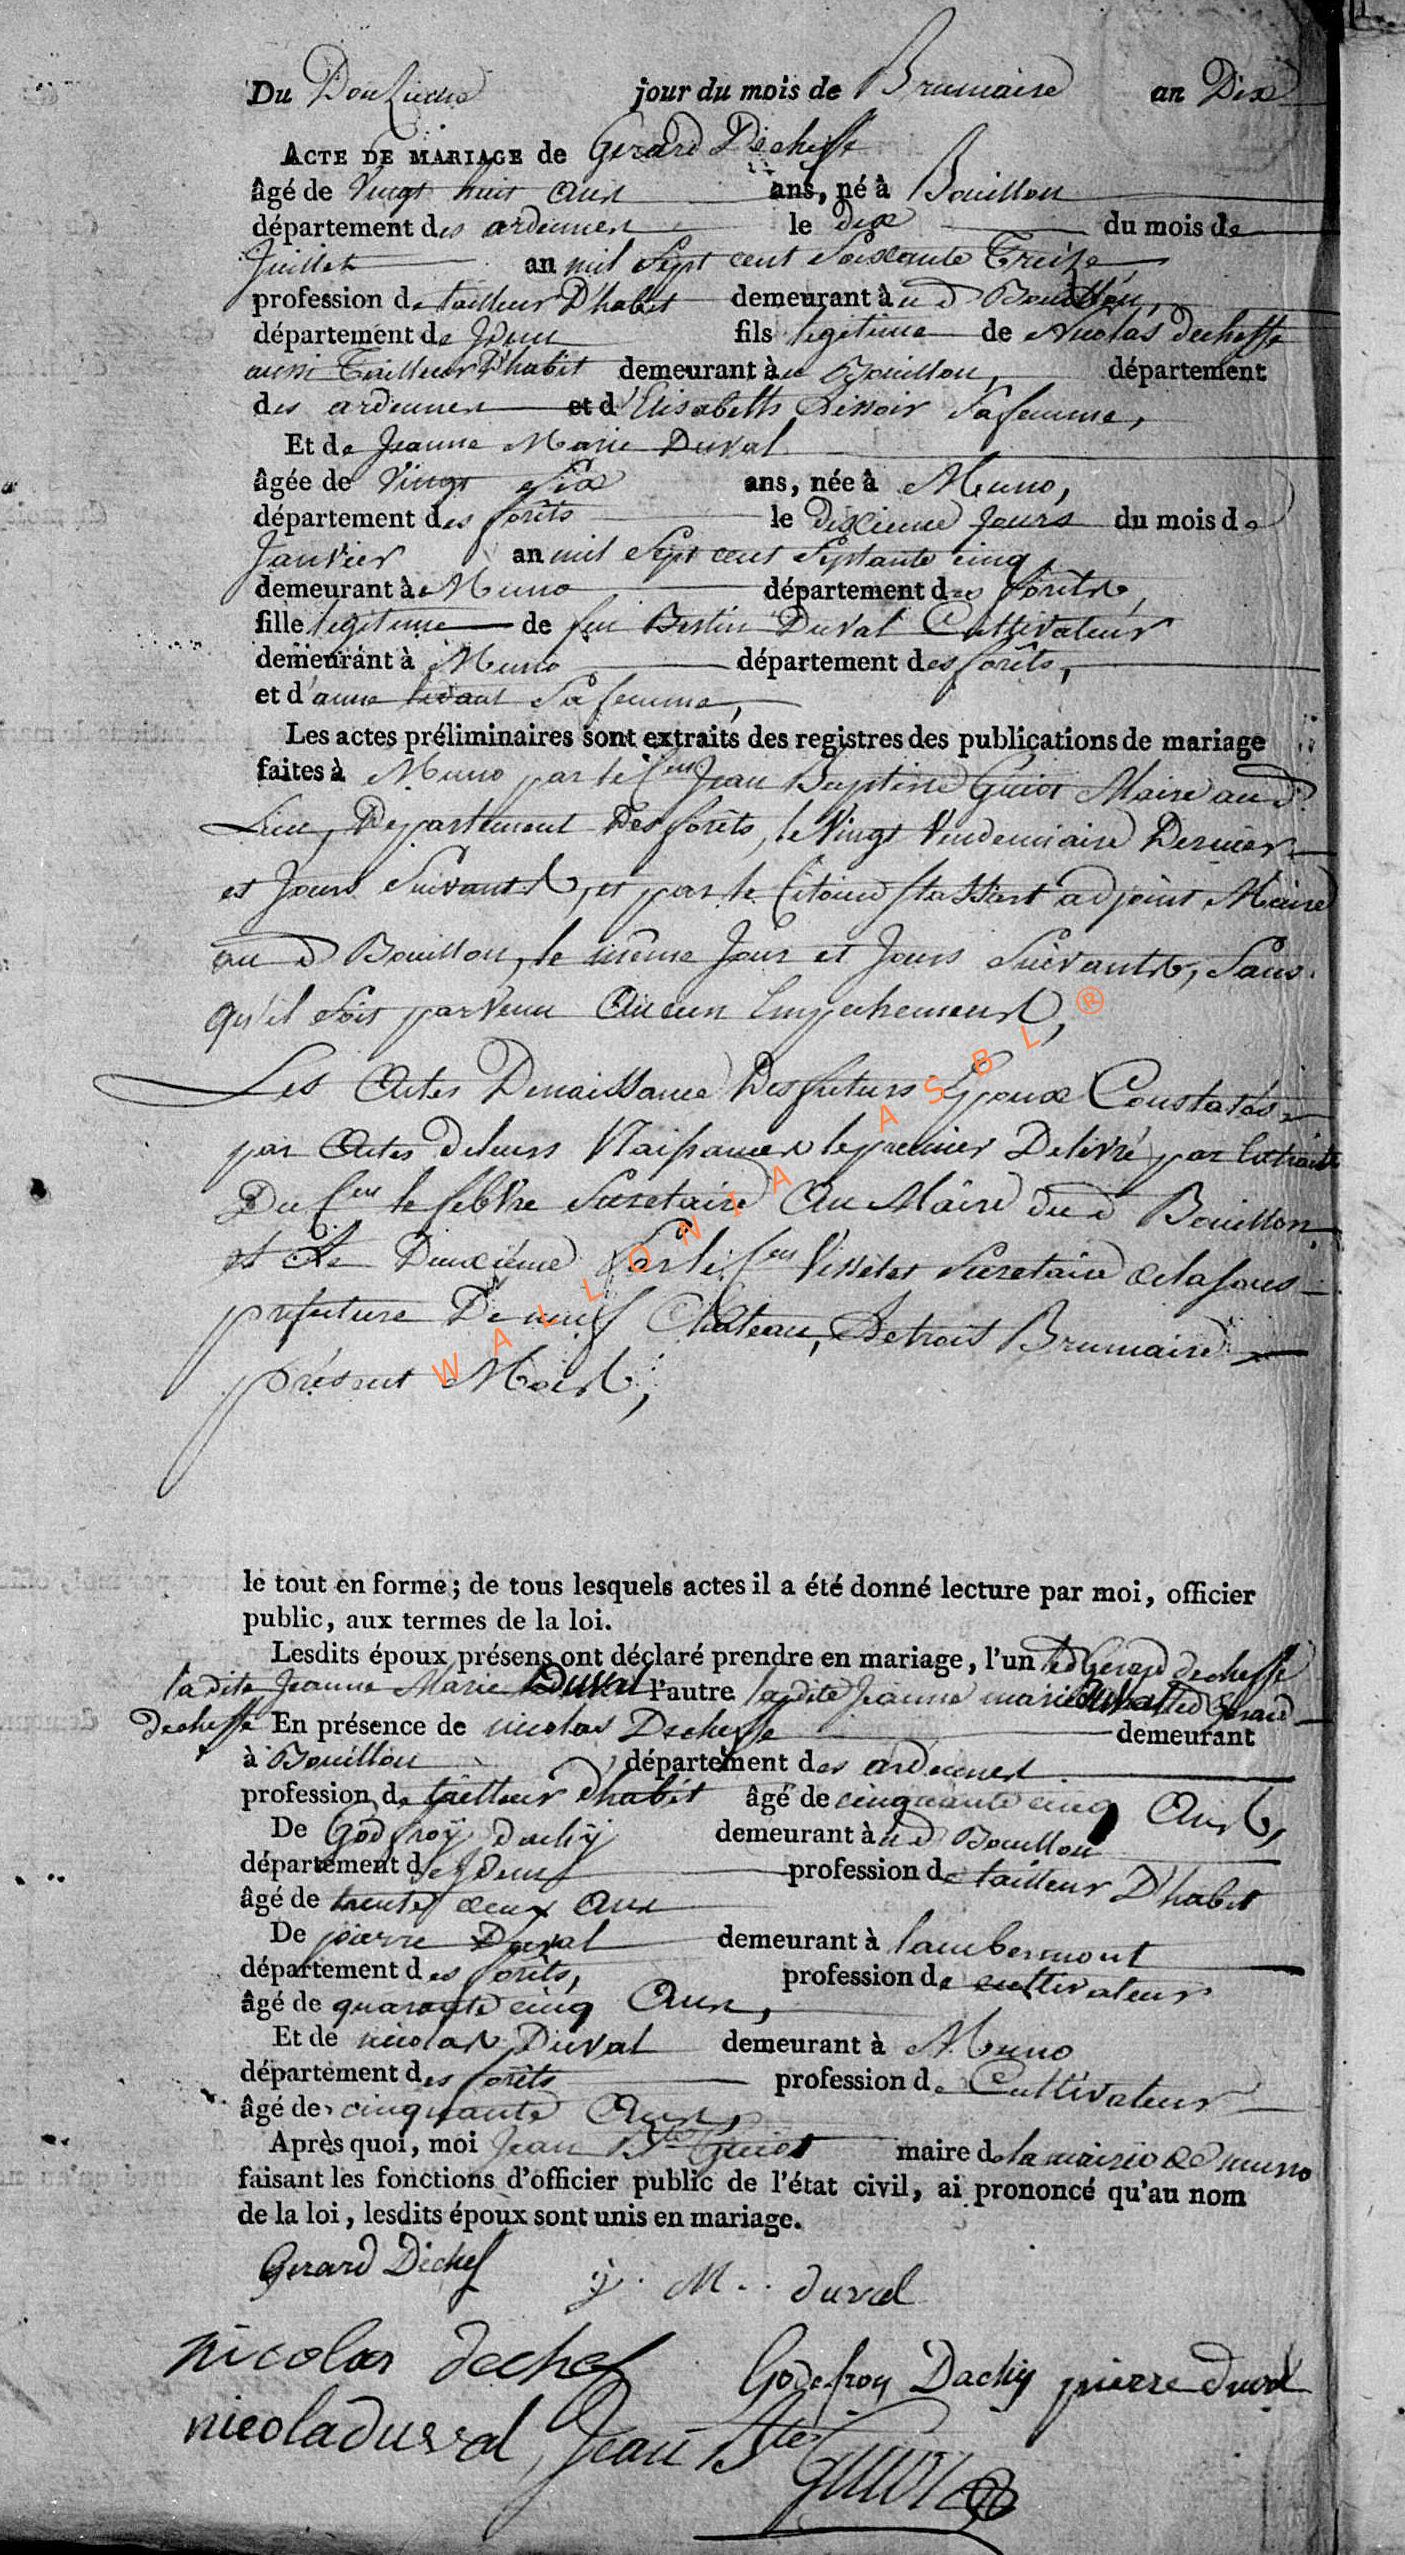 Du Douzieme jour du mois de Brumaire an Dix
ACTE DE MARIAGE de Gerard Decheffe
âgé de Vingt huit ans ans, né à Bouillon
département des ardennes le dix du mois de
Juillet an mil Sept cent Soixante Treize
profession de tailleur D'habit demeurant à ud Bouillon,
département de Idem fils legitime de Nicolas decheffe
aussi Tailleur D'habit demeurant à u Bouillon, département
des ardennes et d'Elisabeth Sa femme,
Et de Jeanne Marie Duval
âgée de Vingt Six ans, née à Muno,
département des forêts le dixieme Jours du mois de
Janvier an mil Sept cent Septante cinq
demeurant à Muno département des forêts,
fille legitime de feu Bertin Duval Cultivateur
demeurant à Muno département des forêts,
et d'anne Sa femme,
Les actes préliminaires sont extraits des registres des publications de mariage
faites à Muno par le Cen Jean Baptiste Guiot Maire aud
Lieu, Departement Des forêts, le Vingt Vendemiaire Dernier
et Jours Suivants, et par le Citoien Stassart adjoint Maire
au d Bouillon, le même Jour et Jours Suivants, Sans
qu'il Soit parvenu Aucun Empechement,
Les Actes Denaissance Des futurs Epoux Constatés
par Actes deleurs Naissances le premier Delivré par Extrait
Du Cen le febvre Secretaire Au Maire dud Bouillon
et Le Deuxiéme Par le Cen Secretaire delasous
prefecture De neuf Chateau, Le trois Brumaire
présent Mois,
WALLONIA ASBL ®
le tout en forme; de tous lesquels actes il a été donné lecture par moi, officier
public, aux termes de la loi.
Lesdits époux présens ont déclaré prendre en mariage, l'un led Gerard decheffe
ladite Jeanne Marie Duval l'autre ladite Jeanne marie Duval led Gerard
decheffe En présence de nicolas Decheffe demeurant
à Bouillon département des ardennes
profession de tailleur d'habit âgé de cinquante cinq Ans,
De Godfroÿ dachÿ demeurant à ud Bouillon
département de Idem profession de tailleur D'habit
âgé de trente deux Ans
De pierre Duval demeurant à lambermont
département des forêts, profession de cultivateur
âgé de quarante cinq Ans,
Et de nicolas Duval demeurant à Muno
département des forêts profession de Cultivateur
âgé de cinquante Ans,
Après quoi, moi Jean Bte Guiot maire de la mairie de muno
faisant les fonctions d'officier public de l'état civil, ai prononcé qu'au nom
de la loi, lesdits époux sont unis en mariage.
Gerard Dechef
j. M.. duval
nicolas dechef
Godefroy Dachy pierre duval
nicoladuval, Jean Bte Guiot